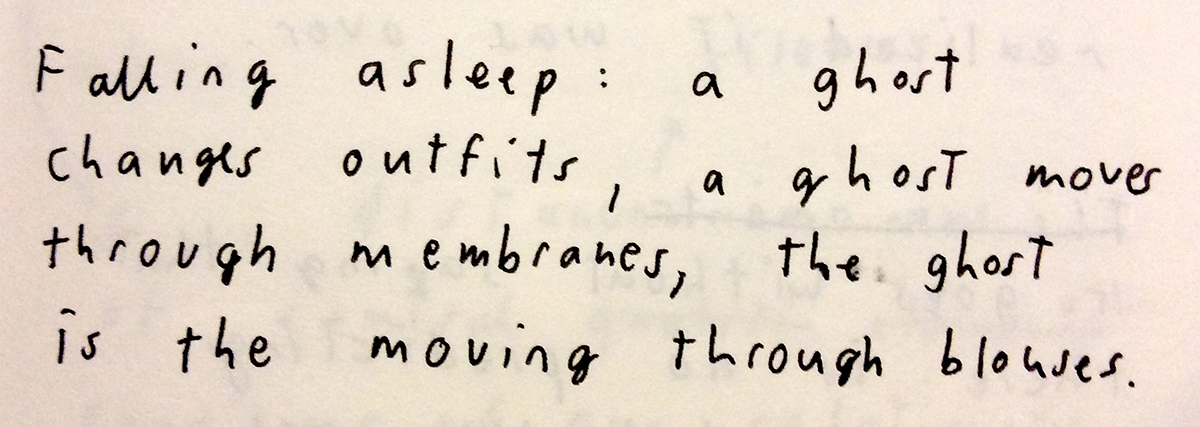 Falling asleep: a ghost
changes outfits, a ghost moves
through membranes, the ghost
is the moving through blouses.